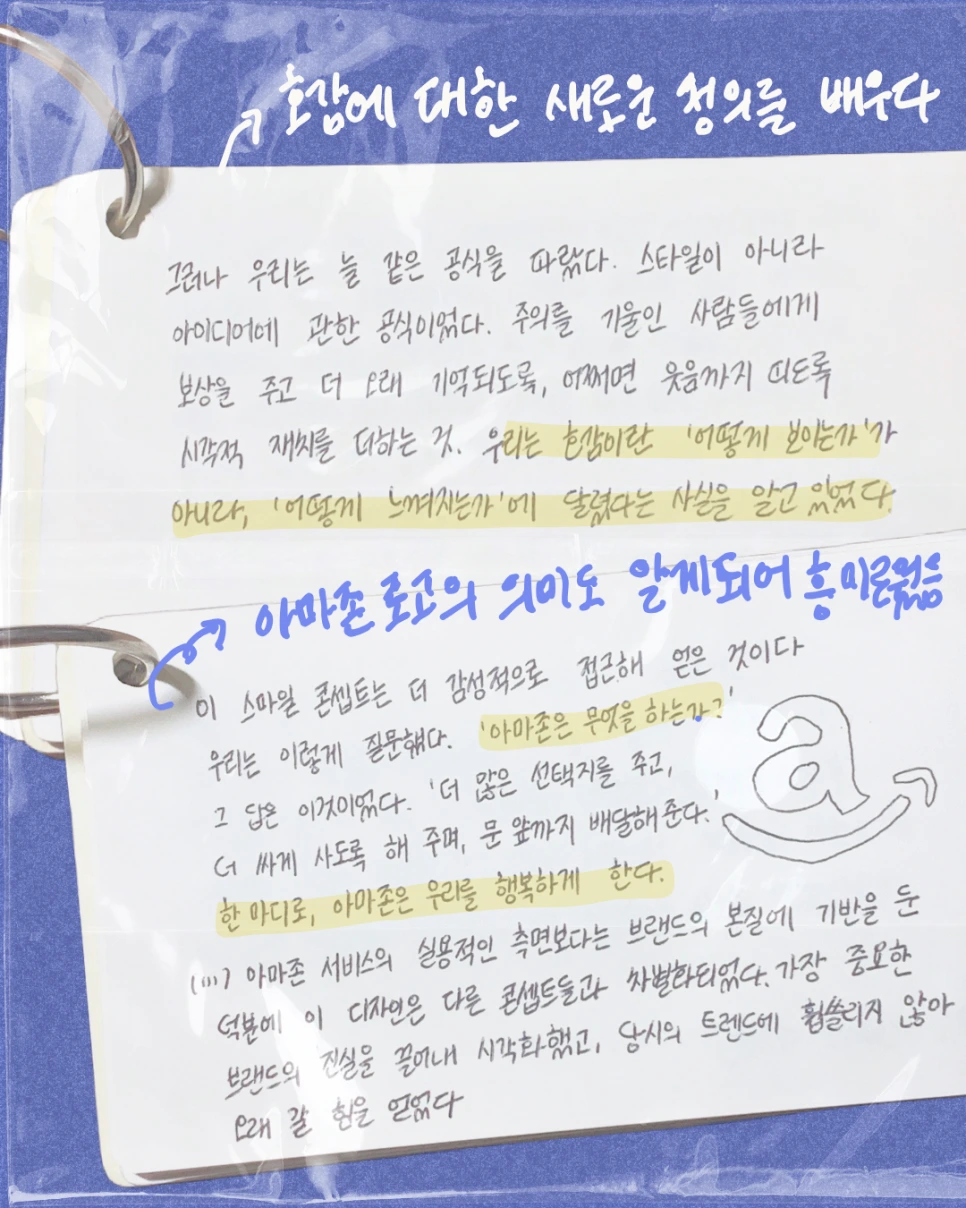 호감에 대한 새로운 정의를 배우다
그러나 우리는 늘 같은 공식을 따랐다. 스타일이 아니라
아이디어에 관한 공식이었다. 주의를 기울인 사람들에게
보상을 주고 더 오래 기억되도록, 어쩌면 웃음까지 띠도록
시각적 재치를 더하는 것. 우리는 호감이란 '어떻게 보이는가'가
아니라, '어떻게 느껴지는가'에 달렸다는 사실을 알고 있었다.
아마존 로고의 의미도 알게되어 흥미로웠음
이 스마일 콘셉트는 더 감성적으로 접근해 얻은 것이다
우리는 이렇게 질문했다. '아마존은 무엇을 하는가?'
그 답은 이것이었다. '더 많은 선택지를 주고,
더 싸게 사도록 해 주며, 문 앞까지 배달해 준다.'
한 마디로, 아마존은 우리를 행복하게 한다.
(...) 아마존 서비스의 실용적인 측면보다는 브랜드의 본질에 기반을 둔
덕분에 이 디자인은 다른 콘셉트들과 차별화되었다. 가장 중요한
브랜드의 진실을 끌어내 시각화했고, 당시의 트렌드에 휩쓸리지 않아
오래 갈 힘을 얻었다
a